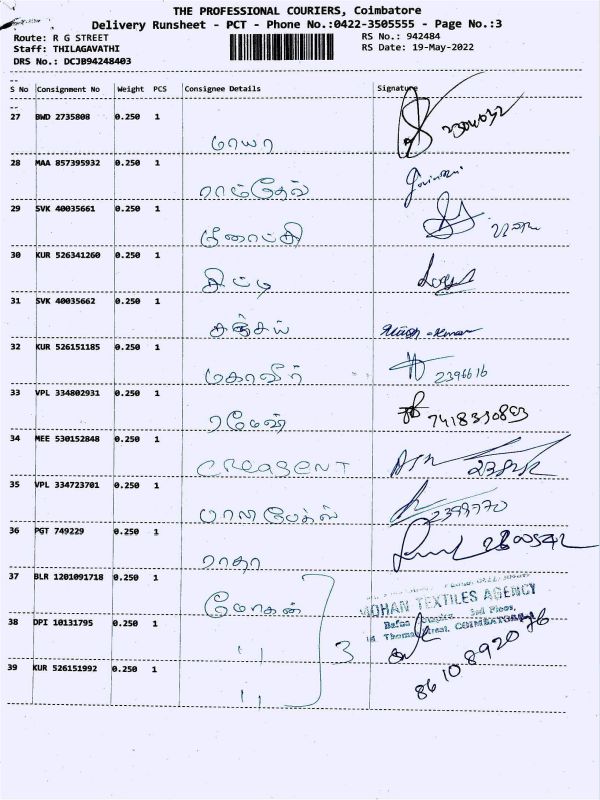 THE PROFESSIONAL COURIERS, Coimbatore
Delivery Runsheet - PCT - Phone No.:0422-3505555 - Page No.:3
Route: R G STREET
RS No.: 942484
Staff: THILAGAVATHI
RS Date: 19-May-2022
DRS No.: DCJB94248403
S No Consignment No Weight PCS Consignee Details Signature
27 BWD 2735808 0.250 1 மாயா
28 MAA 857395932 0.250 1 ராம்தேவ்
29 SVK 40035661 0.250 1 மீனாட்சி
30 KUR 526341260 0.250 1
31 SVK 40035662 0.250 1 சஞ்சய்
32 KUR 526151185 0.250 1 மகாவீர் 2396616
33 VPL 334802931 0.250 1 ரமேஷ் 7418310803
34 MEE 530152848 0.250 1 CREASENT
35 VPL 334723701 0.250 1 2399770
36 PGT 749229 0.250 1 ராதா
37 BLR 1201091718 0.250 1 மோகன்
MOHAN TEXTILES AGENCY
38 DPI 10131795 0.250 1 " 3
39 KUR 526151992 0.250 1 "
8610892076